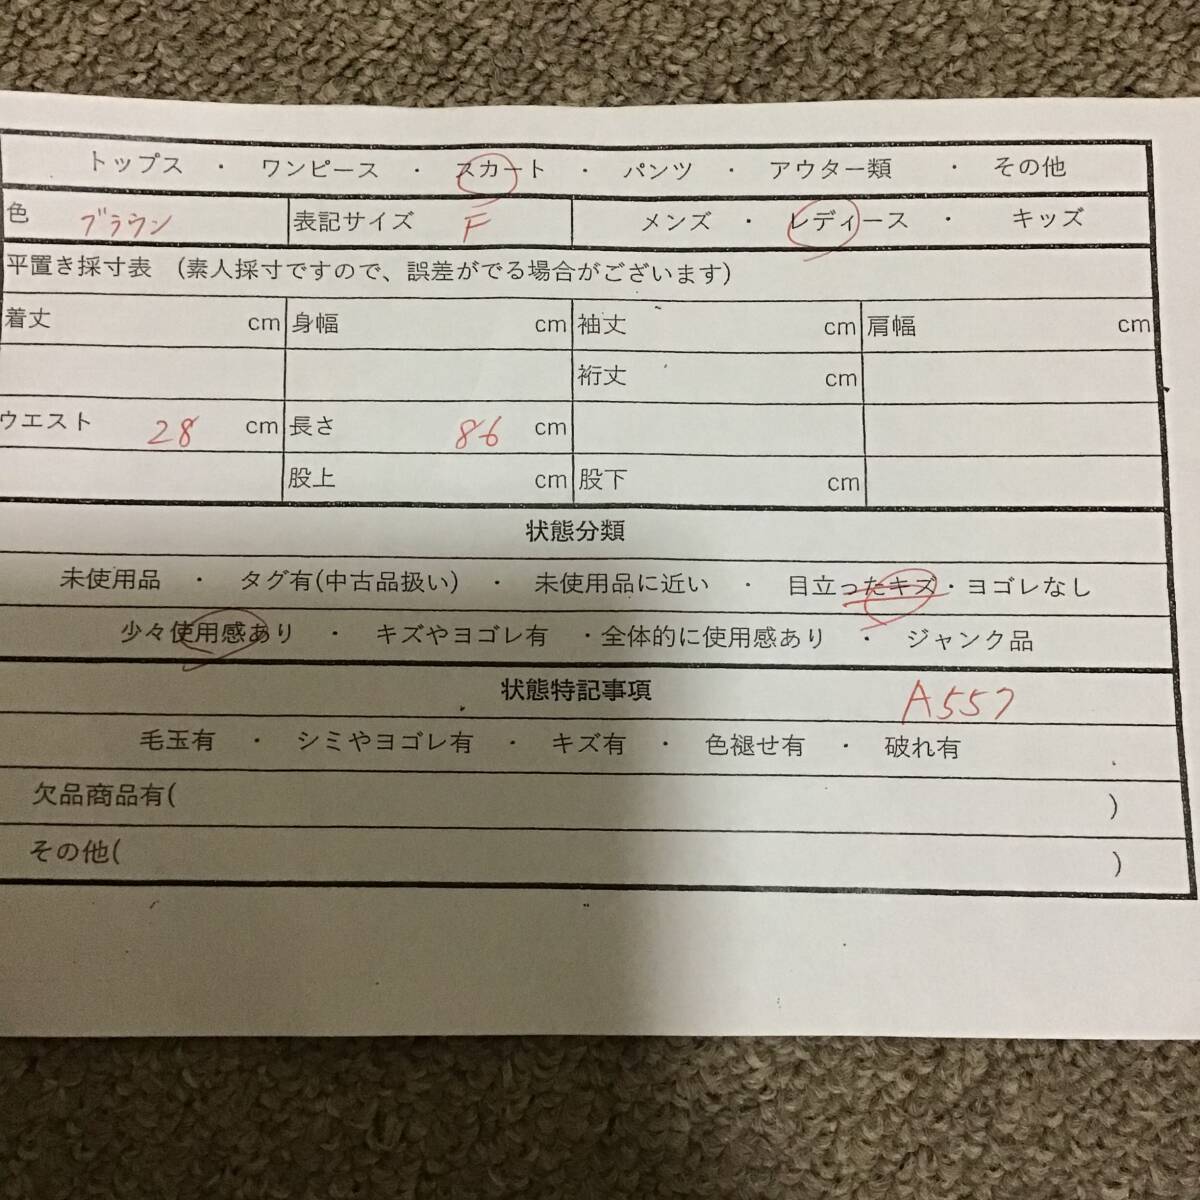 トップス ・ ワンピース ・ スカート ・ パンツ ・ アウター類 ・ その他
色 ブラウン 表記サイズ F メンズ ・ レディース ・ キッズ
平置き採寸表 (素人採寸ですので、誤差がでる場合がございます)
着丈 cm 身幅 cm 袖丈 cm 肩幅 cm
裄丈 cm
ウエスト 28 cm 長さ 86 cm
股上 cm 股下 cm
状態分類
未使用品 ・ タグ有(中古品扱い) ・ 未使用品に近い ・ 目立ったキズ・ヨゴレなし
少々使用感あり ・ キズやヨゴレ有 ・全体的に使用感あり ・ ジャンク品
状態特記事項 A557
毛玉有 ・ シミやヨゴレ有 ・ キズ有 ・ 色褪せ有 ・ 破れ有
欠品商品有( )
その他( )